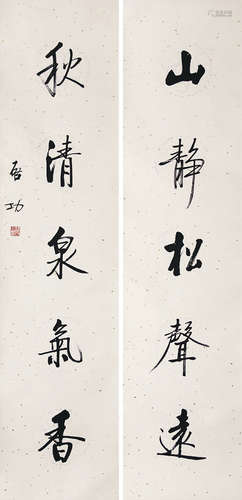 山静松聲遠
秋清泉氣香
启功